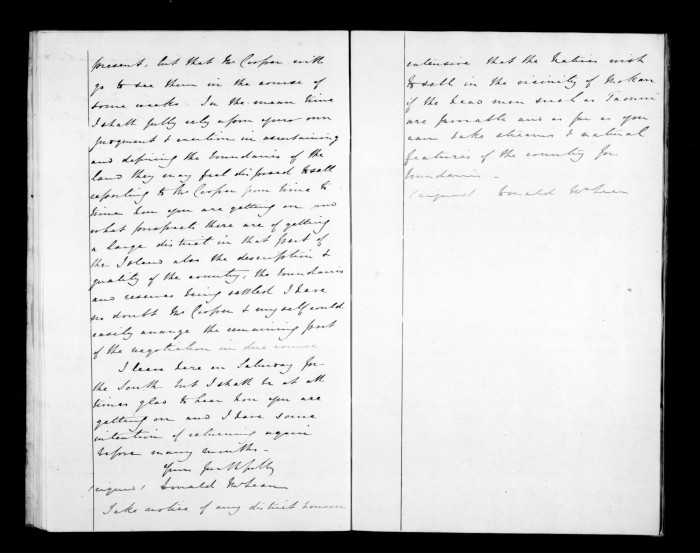 present, but that Mr Cooper will
go to see them in the course of
some weeks. In the mean time
I shall fully rely upon your own
judgment & exertion in ascertaining
and defining the boundaries of the
land they may feel disposed to sell
reporting to Mr Cooper from time to
time how you are getting on and
what prospects there are of getting
a large district in that part of
the Island also the description &
quality of the country, the boundaries
and reserves being settled I have
no doubt Mr Cooper & myself could
easily arrange the remaining part
of the negotiation in due course
I leave here on Saturday for
the South but I shall be at all
times glad to hear how you are
getting on and I have some
intention of returning again
before many months.
Yours faithfully
(signed) Donald McLean
Take notice of any district however
extensive that the Natives wish
to sell in the vicinity of Mokau
if the head men such as
are favorable and as far as you
can take streams & natural
features of the country for
boundaries.
(signed) Donald McLean